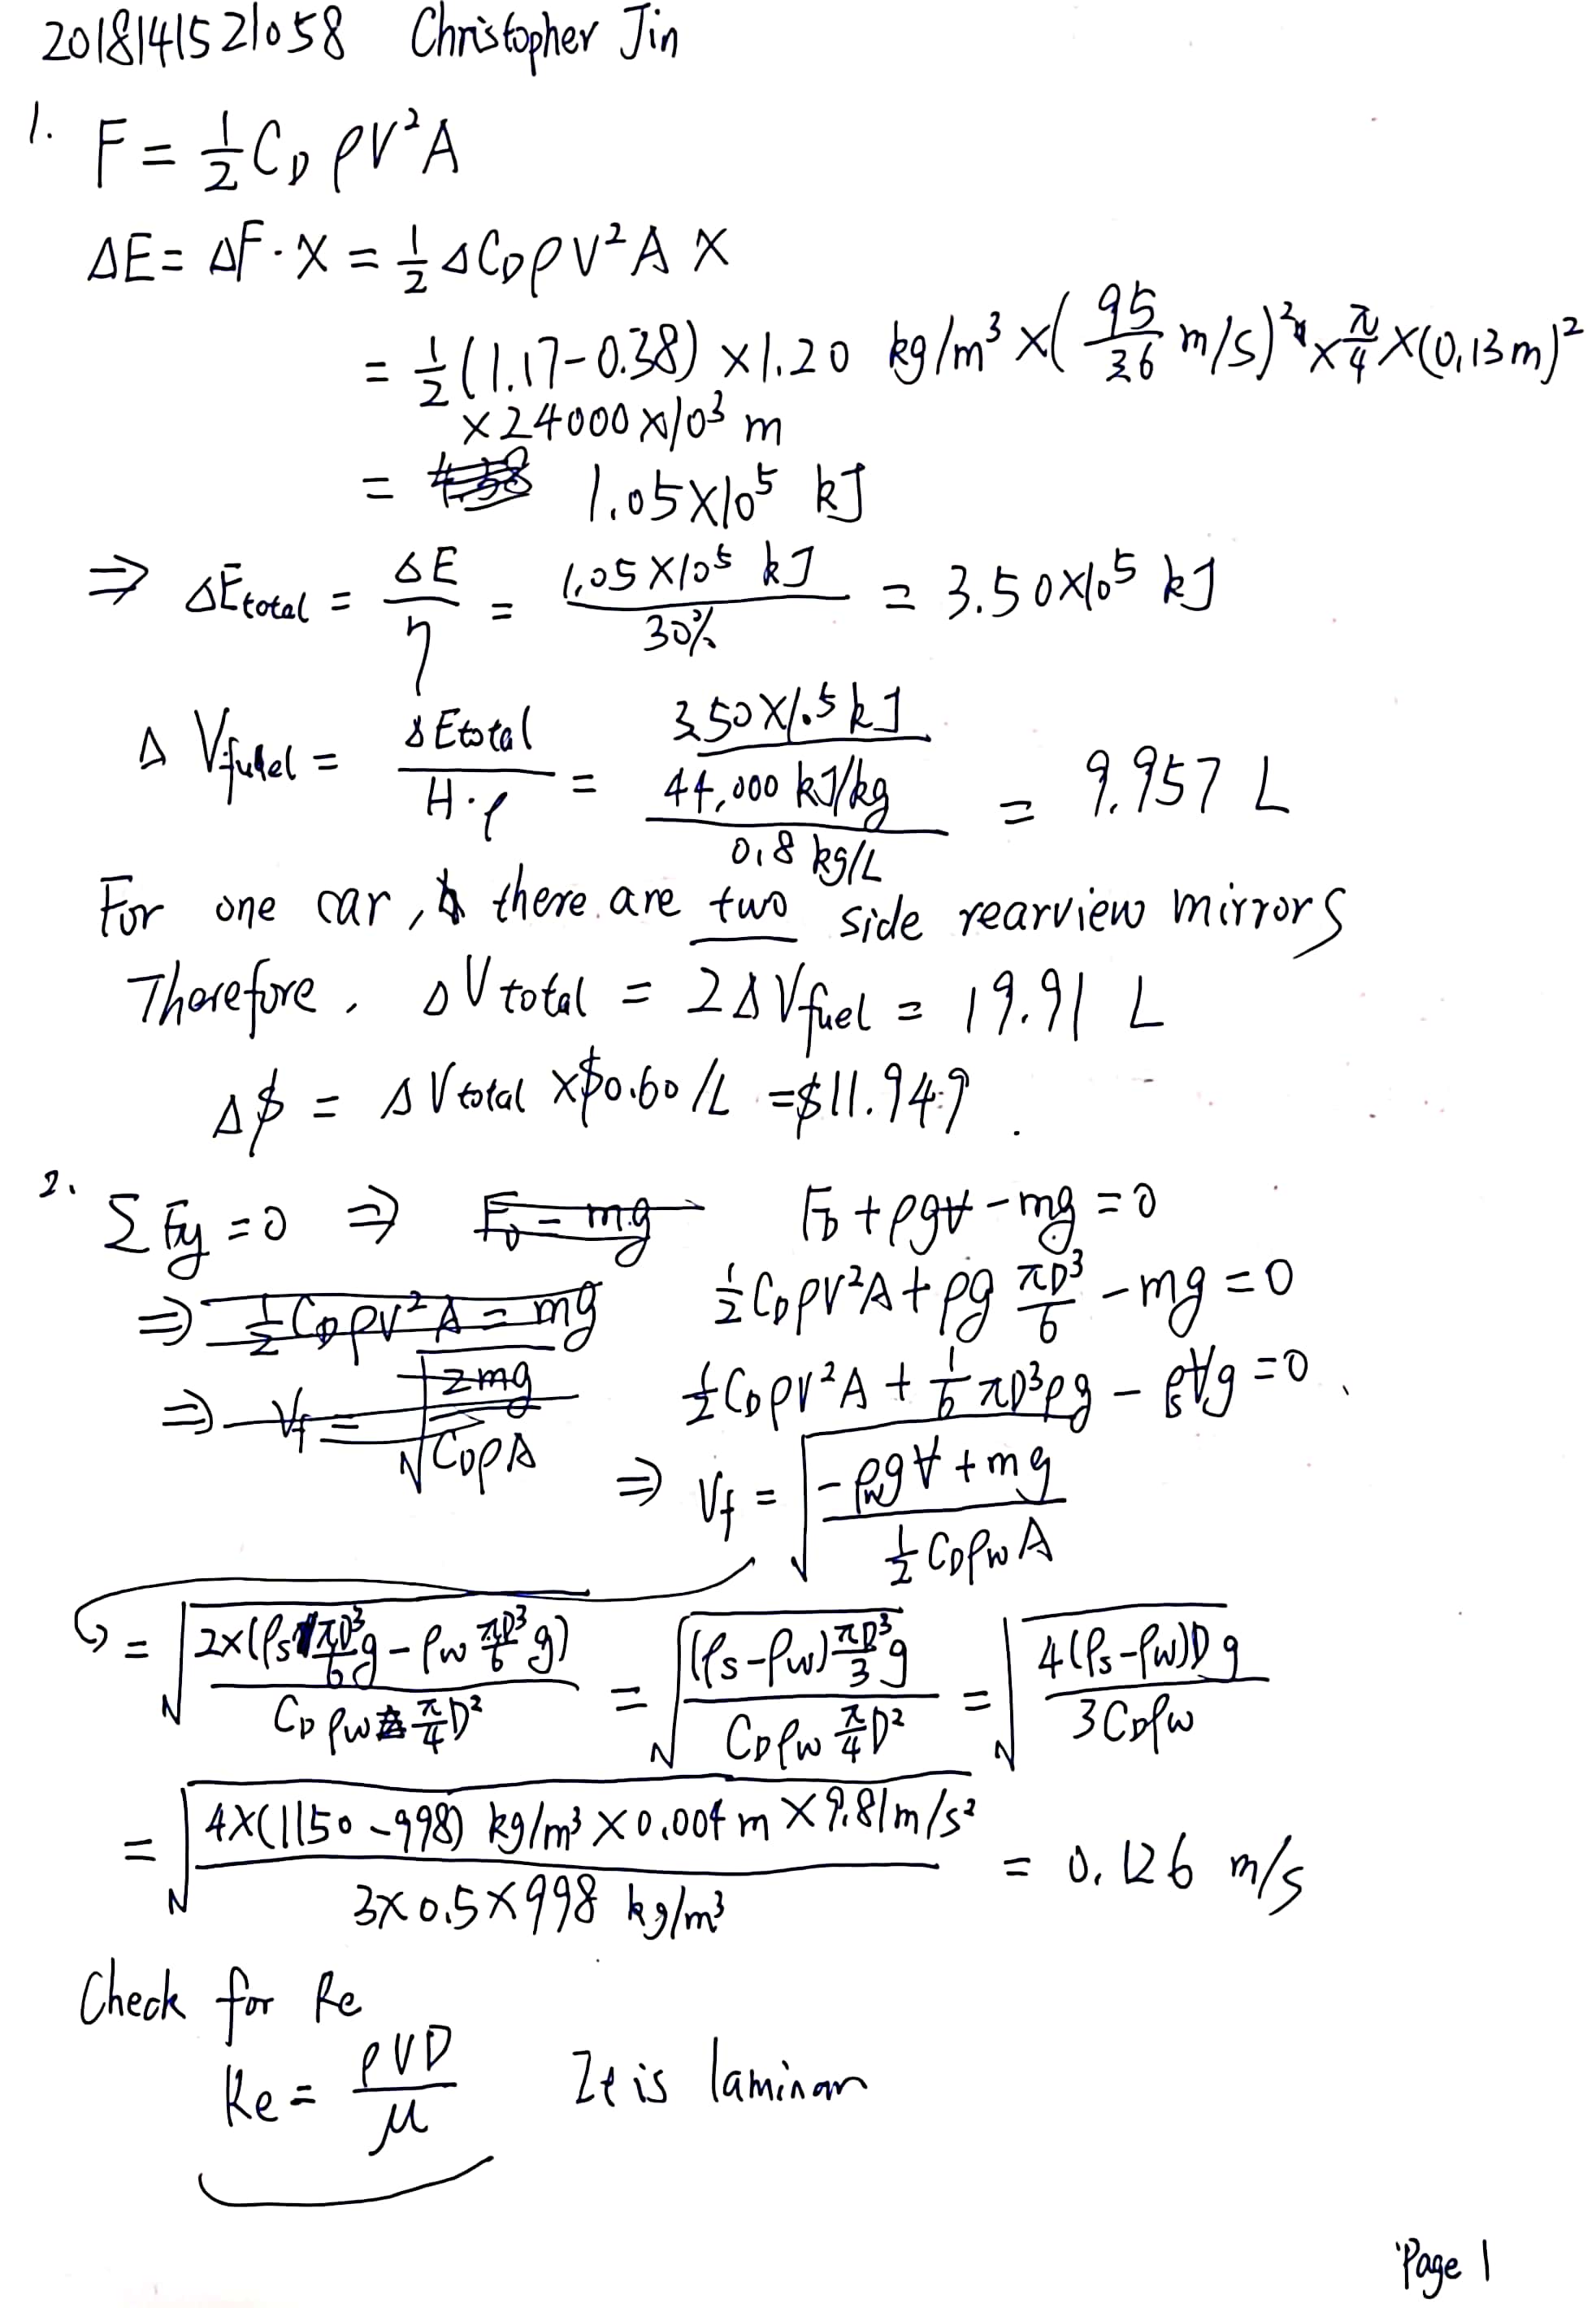 2018141521058 Christopher Jin
1. F = 1/2 C_D ρV²A
ΔE = ΔF·X = 1/2 ΔC_DρV²A X
= 1/2 (1.17-0.38) ×1.20 kg/m³ ×( 95/3.6 m/s)² × π/4 ×(0.13m)²
×24000×10³ m
= 1.05×10⁵ kJ
⇒ ΔE_total = ΔE/η = 1.05×10⁵ kJ / 30% = 3.50×10⁵ kJ
Δ V_fuel = ΔE_total / H·ρ = 3.50×10⁵ kJ / 44,000 kJ/kg / 0.8 kg/L = 9.957 L
For one car, there are two side rearview mirrors
Therefore, ΔV_total = 2ΔV_fuel = 19.91 L
Δ$ = ΔV_total ×$0.60/L =$11.949.
2. ΣFy = 0 ⇒ F_D = mg F_D + ρgV - mg = 0
⇒ 1/2 C_DρV²A = mg 1/2 C_DρV²A + ρg πD³/6 - mg = 0
⇒ V_f = √(2mg / C_DρA) 1/2 C_DρV²A + 1/6 πD³ρg - ρ_sVg = 0.
⇒ V_f = √((-ρ_w gV + mg) / (1/2 C_Dρ_w A))
= √(2×(ρ_s πD³/6 g - ρ_w πD³/6 g) / (C_D ρ_w π/4 D²)) = √((ρ_s-ρ_w) πD³/3 g / (C_Dρ_w π/4 D²)) = √(4(ρ_s-ρ_w)Dg / 3C_Dρ_w)
= √(4×(1150-998) kg/m³ ×0.004 m ×9.81m/s² / 3×0.5×998 kg/m³) = 0.126 m/s
Check for Re
Re = ρVD/μ It is laminar
Page 1